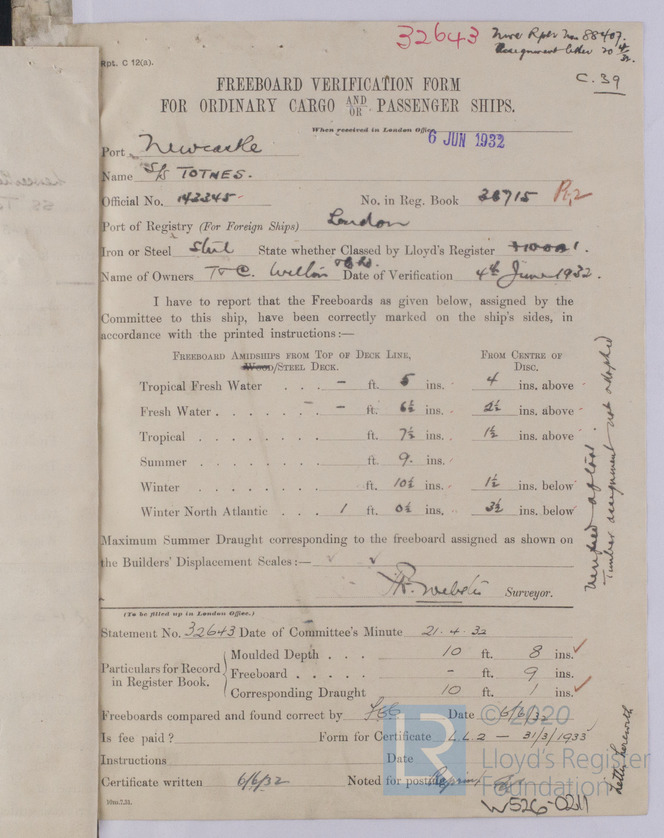 32643
Nwc Rpt No 88407.
Assignment letter 20/4/32.
C. 39
Rpt. C 12(a).
FREEBOARD VERIFICATION FORM
FOR ORDINARY CARGO AND/OR PASSENGER SHIPS.
When received in London Office
6 JUN 1932
Port Newcastle
Name S/S TOTNES.
Official No. 143345 No. in Reg. Book 38715
Port of Registry (For Foreign Ships) London
Iron or Steel Steel State whether Classed by Lloyd's Register +100A1.
Name of Owners Date of Verification 4th June 1932.
I have to report that the Freeboards as given below, assigned by the
Committee to this ship, have been correctly marked on the ship's sides, in
accordance with the printed instructions:—
FREEBOARD AMIDSHIPS FROM TOP OF DECK LINE, FROM CENTRE OF
WOOD/STEEL DECK. DISC.
Tropical Fresh Water . . . – ft. 5 ins. 4 ins. above
Fresh Water . . . . . . – ft. 6½ ins. 2½ ins. above
Tropical . . . . . . . . ft. 7½ ins. 1½ ins. above
Summer . . . . . . . . ft. 9. ins.
Winter . . . . . . . . ft. 10½ ins. 1½ ins. below
Winter North Atlantic . . . 1 ft. 0½ ins. 3½ ins. below
Maximum Summer Draught corresponding to the freeboard assigned as shown on
the Builders' Displacement Scales:— ✓ ✓
Webster Surveyor.
Verified afloat.
Timber assignment not adopted
(To be filled up in London Office.)
Statement No. 32643 Date of Committee's Minute 21.4.32
Particulars for Record in Register Book.
Moulded Depth . . . 10 ft. 8 ins. ✓
Freeboard . . . . . – ft. 9 ins.
Corresponding Draught 10 ft. 1 ins. ✓
Freeboards compared and found correct by Date 6/6/32
Is fee paid? Form for Certificate L.L.2 — 31/3/1933
Instructions Date
Certificate written 6/6/32 Noted for posting
10m.7.31.
Letter herewith
© 2020
LR
Lloyd's Register
Foundation
W526-0211